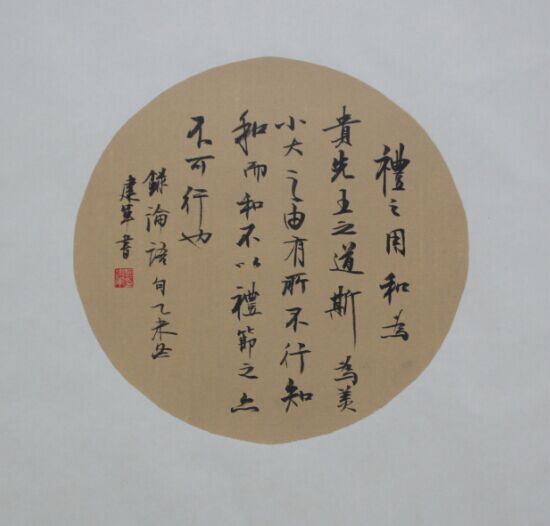 禮之用和為
貴先王之道斯為美
小大之由有所不行知
和而和不以禮節之亦
不可行也
錄論語句乙未冬
建軍書